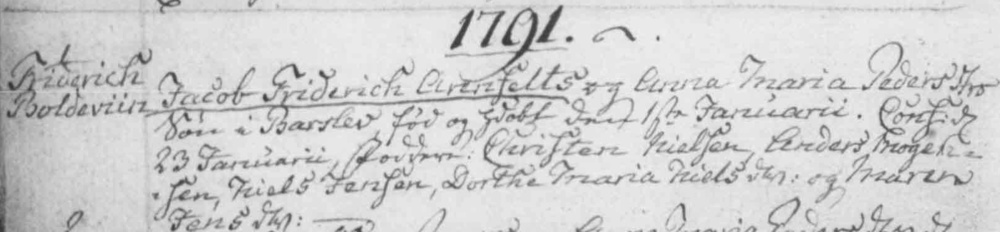 1791.
Friderich
Boldeviin
Jacob Friderich Arnfelts og Anna Maria Peders dtrs
Søn i Barslev fød og hdøbt den 1ste Januarii. Conf: d
23 Januarii, Faddere: Christen Nielsen, Anders Mogen=
=sen, Niels Jensen, Dorthe Maria Niels dtr: og Maren
Jens dtr:
Maria